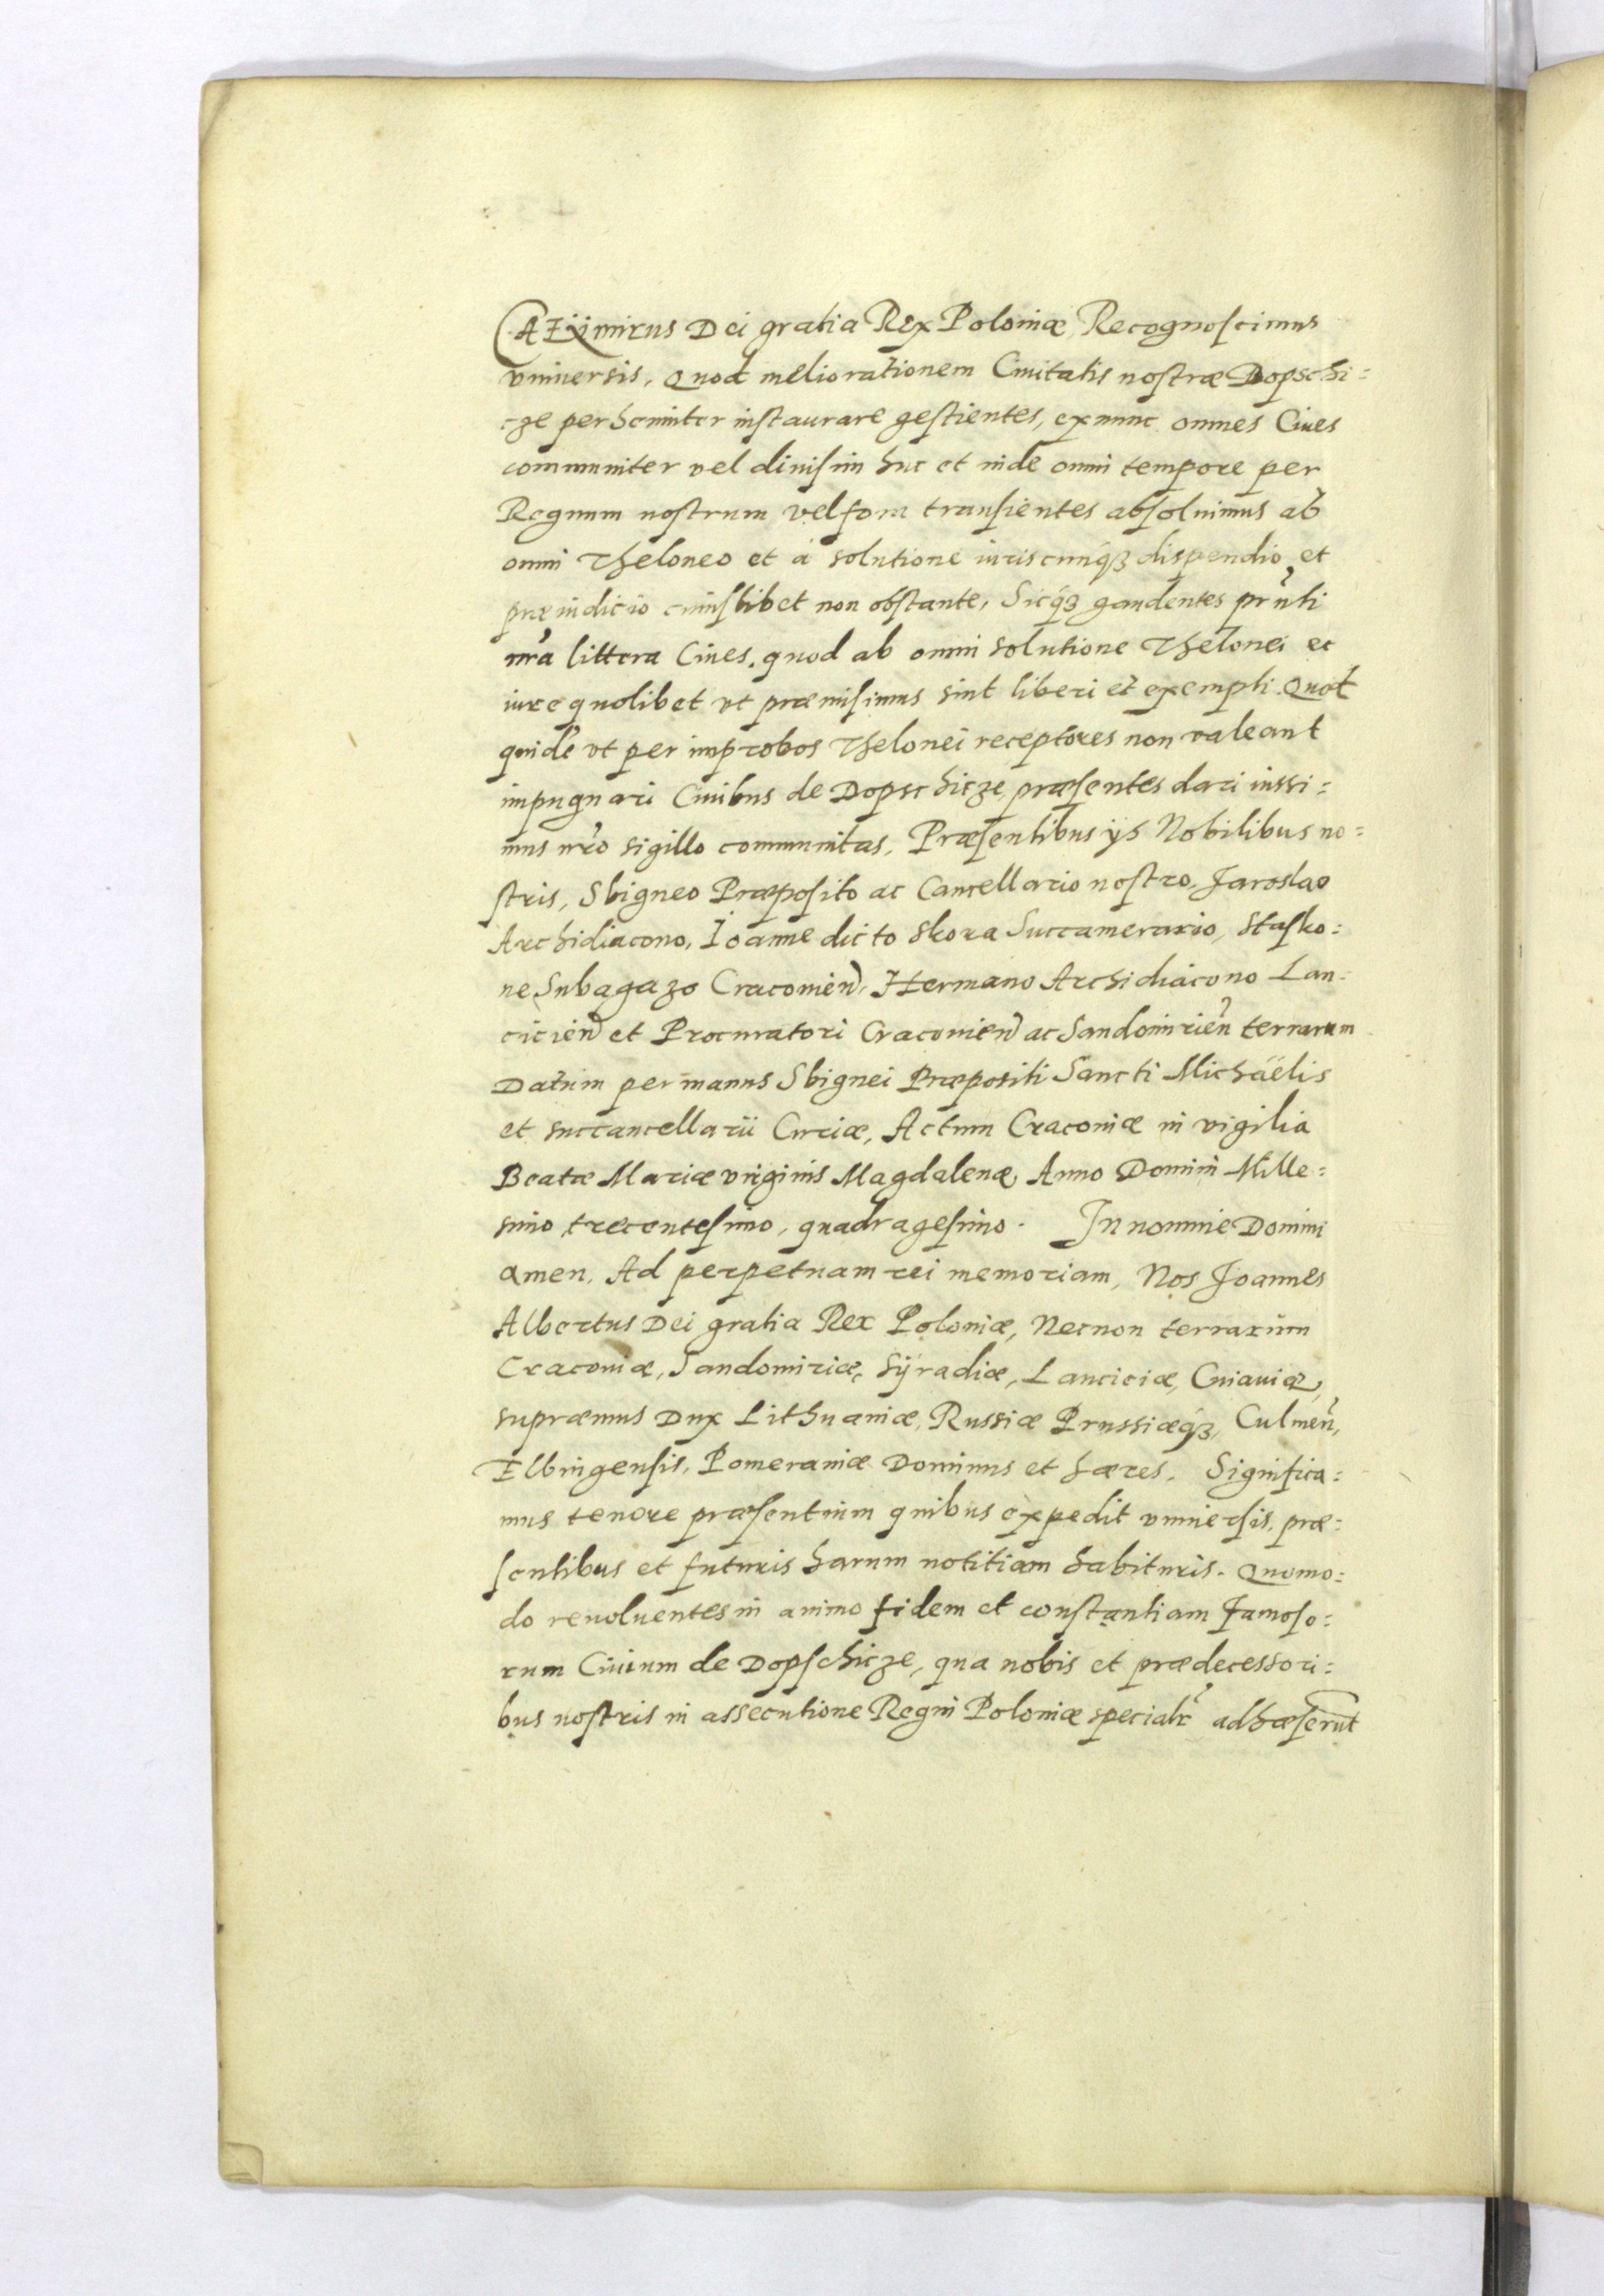 CAZijmirus Dei gratia Rex Poloniæ, Recognoſcimus
vniuersis, Quod meliorationem Ciuitatis nostræ Dopschi=
cze perhenniter instaurare gestientes, ex nunc omnes Ciues
communiter vel diuisim huc et inde omni tempore per
Regnum nostrum vel fora transientes absoluimus ab
omni Theloneo et á solutione iuriscunq́ꝫ dispendio et
præiudicio cuiuslibet non obstante, Sicq́ꝫ gaudentes pr̃nti
nr̃a littera Ciues, quod ab omni solutione Thelonei et
iure quolibet vt præmisimus sint liberi et exempti. Quot
quidẽ vt per improbos Thelonei receptores non valeant
impugnari Ciuibus de Dopschicze, præsentes dari iussi=
mus nr̃o sigillo communitas, Præsentibus ijs Nobilibus no=
stris, Sbigneo Præposito ac Cancellario nostro, Jaroslao
Archidiacono, Ioanne dicto Skora Succamerario, Stasko=
ne Subagazo Cracouien̄, Hermano Archidiácono Lan=
cicien̄ et Procuratori Cracouien̄ ac Sandomirien̄ terrarum
Datum per manus Sbignei Præpositi Sancti Michäelis
et succancellarii Curiæ, Actum Cracouiæ in vigilia
Beatæ Mariæ virginis Magdalenæ, Anno Domini Mille=
simo, trecentesimo, quadragesimo. In nomine Domini
amen, Ad perpetuam rei memoriam, Nos Joannes
Albertus Dei gratia Rex Poloniæ, Necnon terrarum
Cracouiæ, Sandomiriæ, Sÿradiæ, Lanciciæ, Cuiauiæ,
supræmus Dux Lithuaniæ, Russiæ Prussiæq́ꝫ, Culmen̄,
Elbingensis, Pomeraniæ Dominus et hæres. Significa=
mus tenore præsentium quibus expedit vniuersis, præ=
sentibus et futuris harum notitiam habituris. Quomo=
do reuoluentes in animo fidem et constantiam famoso=
rum Ciuium de Dopschicze, qua nobis et prædecessori=
bus nostris in assecutione Regni Poloniæ specialr̃ adhæserũt